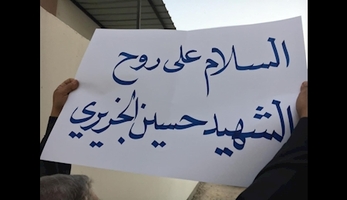 السلام على روح
الشهيد حسين الجزيري